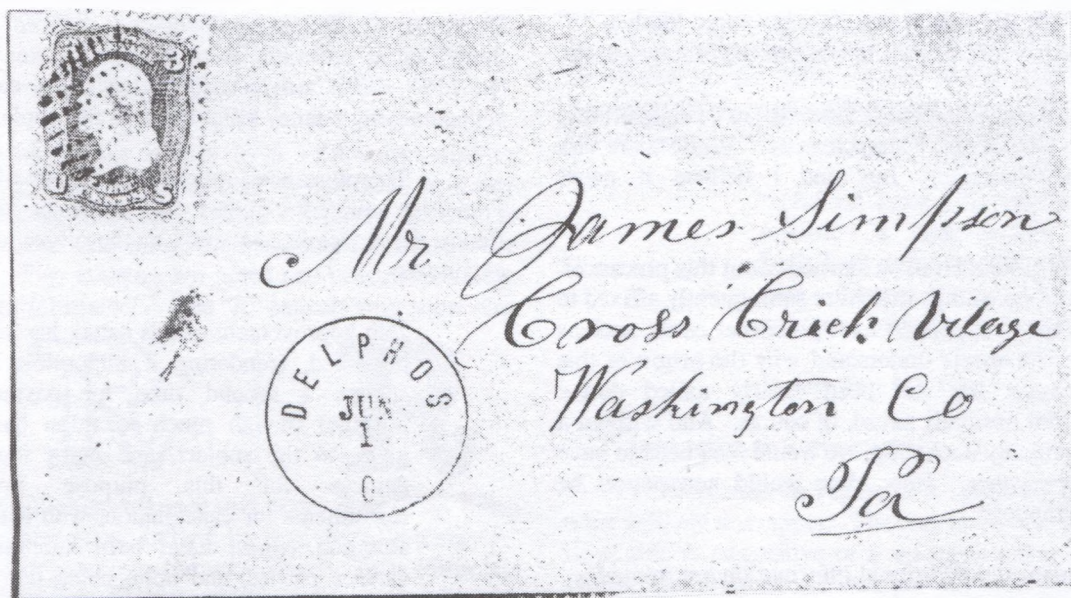 3
U S
Mr James Simpson
Cross Creek Vilage
Washington Co
Pa
DELPHOS
JUN
1
O